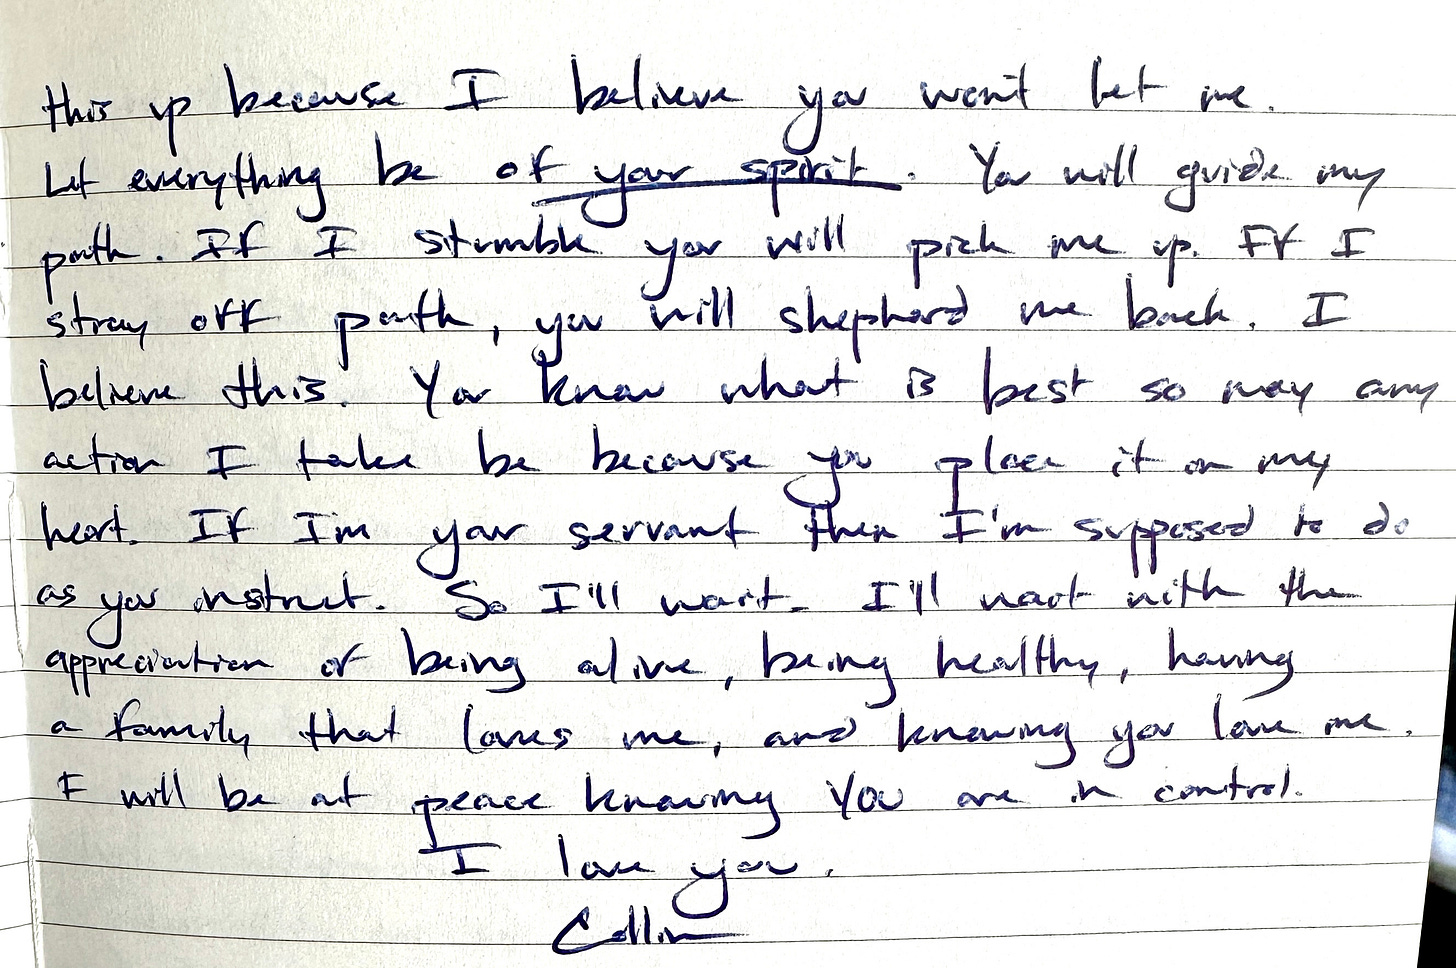 this up because I believe you won't let me.
Let everything be of your spirit. You will guide my
path. If I stumble you will pick me up. If I
stray off path, you will shepherd me back. I
believe this. You know what is best so may any
action I take be because you place it on my
heart. If I'm your servant then I'm supposed to do
as you instruct. So I'll wait. I'll wait with the
appreciation of being alive, being healthy, having
a family that loves me, and knowing you love me.
I will be at peace knowing YOU are in control.
I love you.
Collin